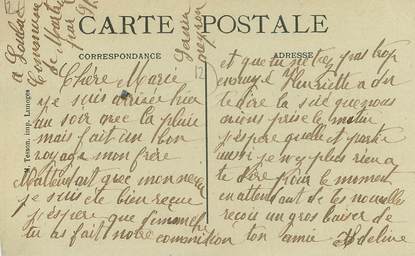 CARTE POSTALE
CORRESPONDANCE
ADRESSE
Tesson, imp. Limoges
12
Chère Marie
je suis arrivée hier
au soir avec la pluie
mais fait un bon
voyage mon frère
m'attendait avec mon neveu
je suis été bien reçue
j'espère que dimanche
tu as fait notre commission
et que tu ne t'es pas trop
ennuyé Henriette a du
te dire la suite que nous
avions prise le matin
j'espère quelle et partie
aussi je ny plus rien a
te dire pour le moment
en attendant de tes nouvelles
reçois un gros baiser de
ton amie Adeline